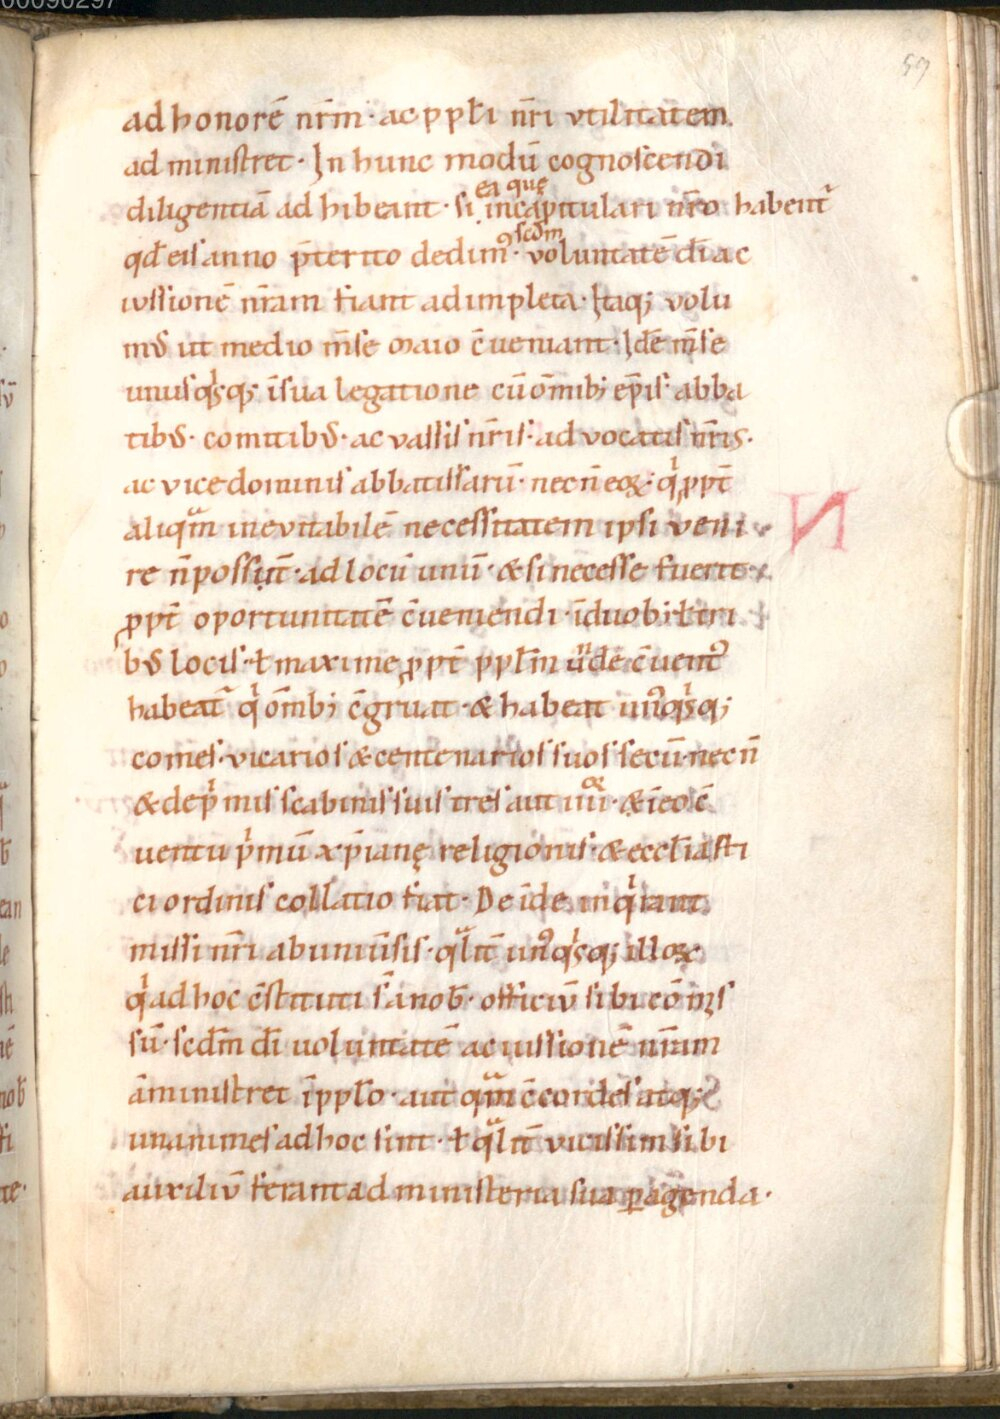 59
ad honorē nr̄m · ac ppl̄i nr̄i vtilitatem
ad ministret · In hunc modū cognoscendi
ea quę
diligentiā ad hibeant · si incapitulari nr̄o habent᷑
scd̄m
qd̄ eis anno p̄terito dedimꝰ · voluntatē dī ac
iussionē nr̄am fiant adimpleta · Itaq; volu
mꝰ ut medio m̄se maio c̄ueniant · Idē m̄se
unusqͥsq; īsua legatione cū om̄ib; ep̄is · abba
tibꝰ · comitibꝰ · ac vassis nr̄is · ad vocatis nr̄is ·
ac vice dominis abbatissarū · necn̄ eoꝝ · qͥ ꝓpt̄
aliqᵃm inevitabilē necessitatem ipsi veni
re n̄ possint̄ · ad locū unū · & si necesse fuerit ·
ꝓpt̄ oportunitatē c̄ueniendi · īduob; ł tri
bꝰ locis · ł maxime ꝓpt̄ ppl̄m uͥde c̄ventꝰ
habeat᷑ qͥ om̄ib; c̄gruat · & habeat unꝰqͥsq;
comes · vicarios & centenarios suos secū · necn̄
& de pͥmis scabinis suis tres aut iiiiᵒʳ · & īeo c̄
ventu pͥmū xp̄ianę religionis · & eccl̄iasti
ci ordinis collatio fiat · De īde inqͥrant
missi nr̄i ab univ̄sis · qᵃlit̄ unꝰqͥsq; illoꝝ
qͥ ad hoc c̄stituti s̄ a nob̄ · officiū sibi cōmis
sū · scd̄m dī uoluntatē ac iussionē nr̄am
āministret īpplo̅ · aut qᵃm c̄cordes atq;
unanimes ad hoc sint · ł qᵃlit̄ vicissim sibi
auxiliū ferant ad ministeria sua ꝑagenda ·